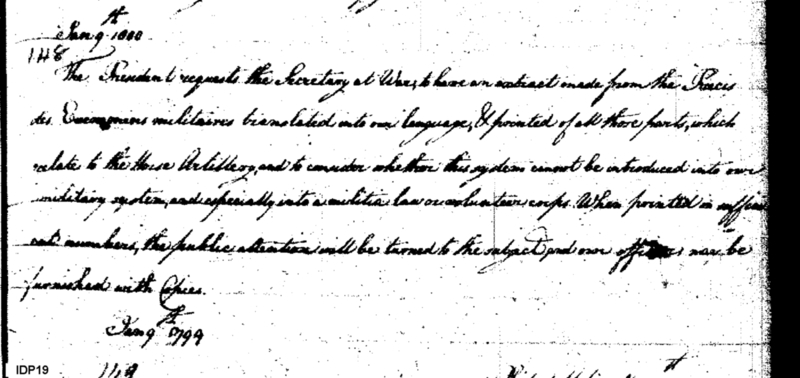 Jan 9th 1800
148
The President requests the Secretary at War, to have an extract made from the Precis
des Evenemens militaires translated into our language, & printed of all those parts, which
relate to the Horse Artillery, and to consider whether this system cannot be introduced into our
military system, and especially into a militia law or volunteer corps. When printed in suffici
ent numbers, the public attention will be turned to the subject and our officers may be
furnished with Copies.
Jan 9th 1799
149
IDP19